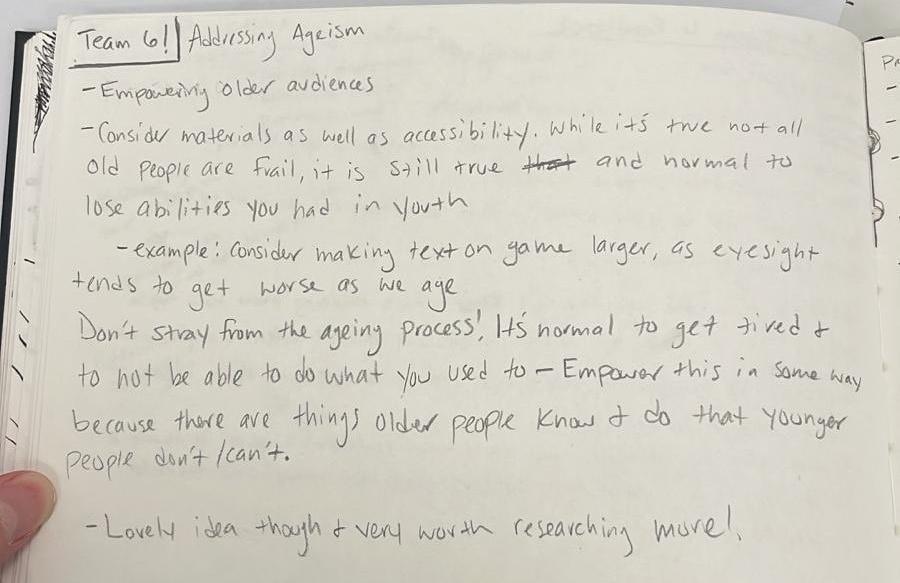 Team 6! Addressing Ageism
- Empowering older audiences
- Consider materials as well as accessibility. While it's true not all
old people are frail, it is still true that and normal to
lose abilities you had in youth
- example: consider making text on game larger, as eyesight
tends to get worse as we age
Don't stray from the ageing process! It's normal to get tired &
to not be able to do what you used to - Empower this in some way
because there are things older people know & do that younger
people don't/can't.
- Lovely idea though & very worth researching more!